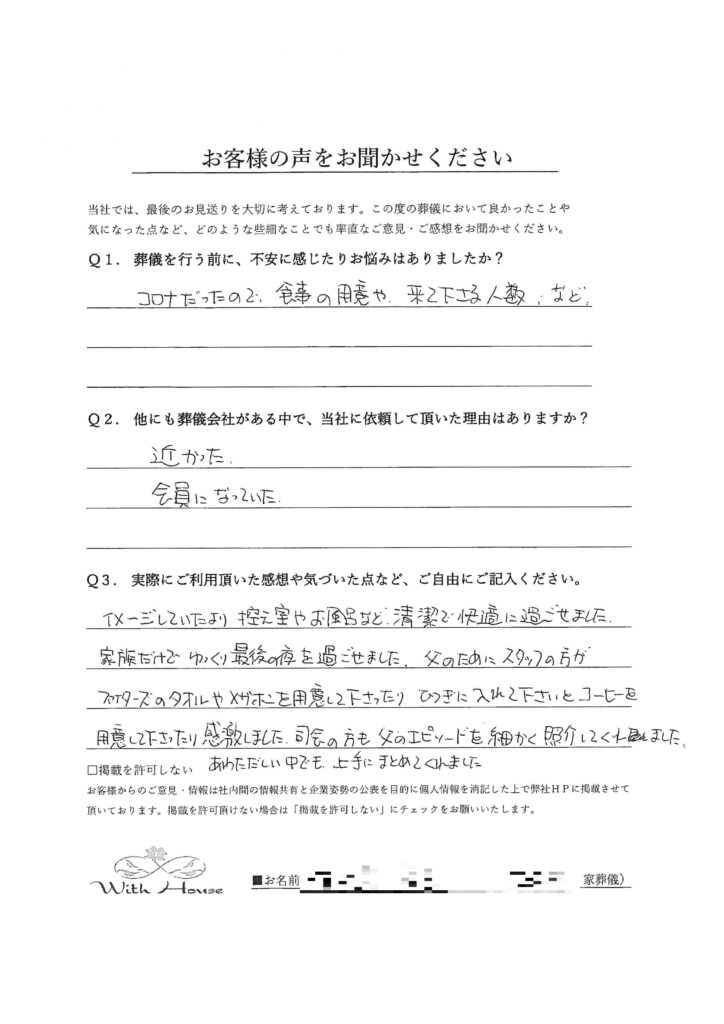 お客様の声をお聞かせください
当社では、最後のお見送りを大切に考えております。この度の葬儀において良かったことや
気になった点など、どのような些細なことでも率直なご意見・ご感想をお聞かせください。
Q1. 葬儀を行う前に、不安に感じたりお悩みはありましたか？
コロナだったので、食事の用意や、来て下さる人数、など。
Q2. 他にも葬儀会社がある中で、当社に依頼して頂いた理由はありますか？
近かった。
会員になっていた。
Q3. 実際にご利用頂いた感想や気づいた点など、ご自由にご記入ください。
イメージしていたより控え室やお風呂など、清潔で快適に過ごせました。
家族だけでゆっくり最後の夜を過ごせました。父のためにスタッフの方が
タイガーズのタオルやメガホンを用意して下さったり ひつぎに入れて下さいとコーヒーを
用意して下さったり感激しました。司会の方も父のエピソードを細かく照介してくれました。
あわただしい中でも、上手にまとめてくれました
□掲載を許可しない
お客様からのご意見・情報は社内間の情報共有と企業姿勢の公表を目的に個人情報を消記した上で弊社HPに掲載させて
頂いております。掲載を許可頂けない場合は「掲載を許可しない」にチェックをお願いいたします。
With House
■お名前
家葬儀）